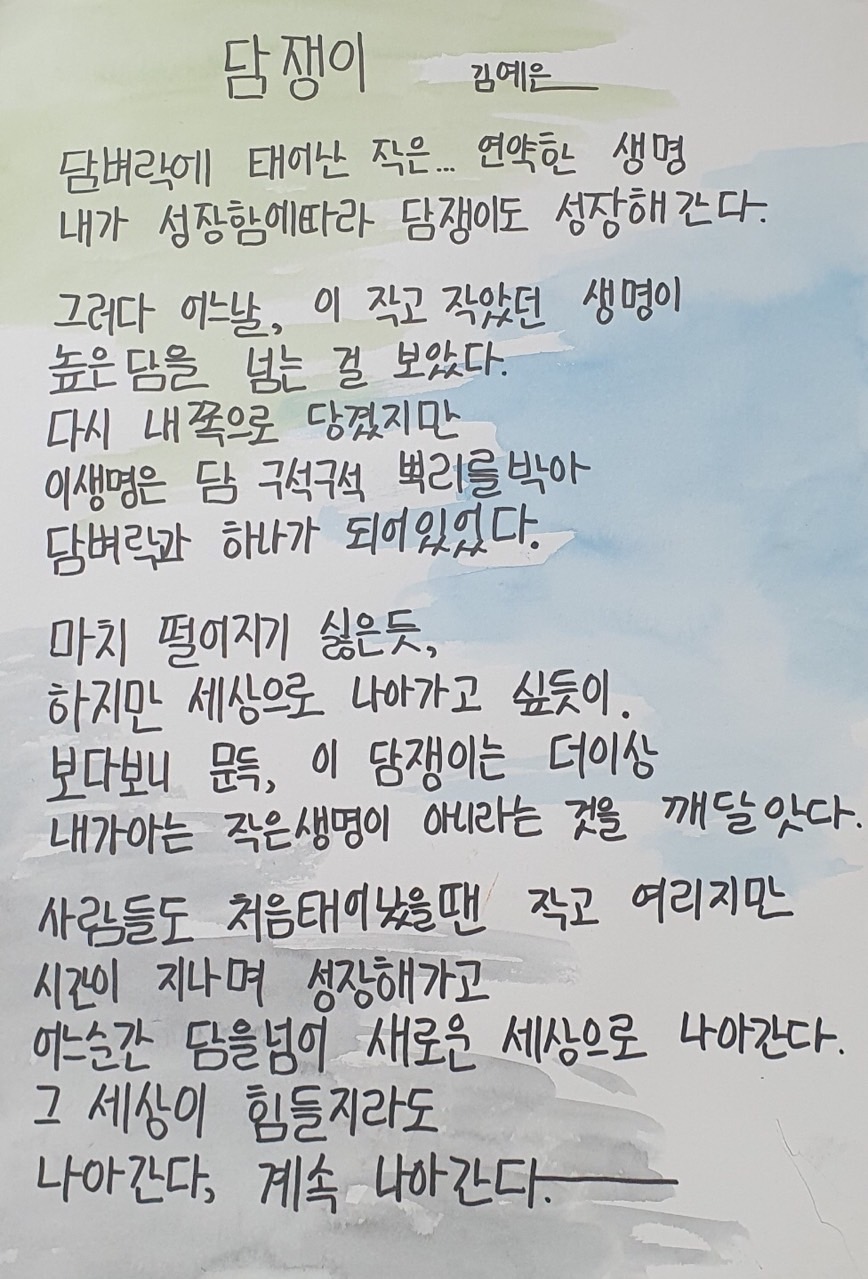 담쟁이 김예은
담벼락에 태어난 작은... 연약한 생명
내가 성장함에따라 담쟁이도 성장해간다.
그러다 어느날, 이 작고 작았던 생명이
높은담을 넘는 걸 보았다.
다시 내쪽으로 당겼지만
이생명은 담 구석구석 뿌리를박아
담벼락과 하나가 되어있었다.
마치 떨어지기 싫은듯,
하지만 세상으로 나아가고 싶듯이.
보다보니 문득, 이 담쟁이는 더이상
내가아는 작은생명이 아니라는 것을 깨달앗다.
사람들도 처음태어났을땐 작고 여리지만
시간이 지나며 성장해가고
어느순간 담을넘어 새로운 세상으로 나아간다.
그 세상이 힘들지라도
나아간다, 계속 나아간다.